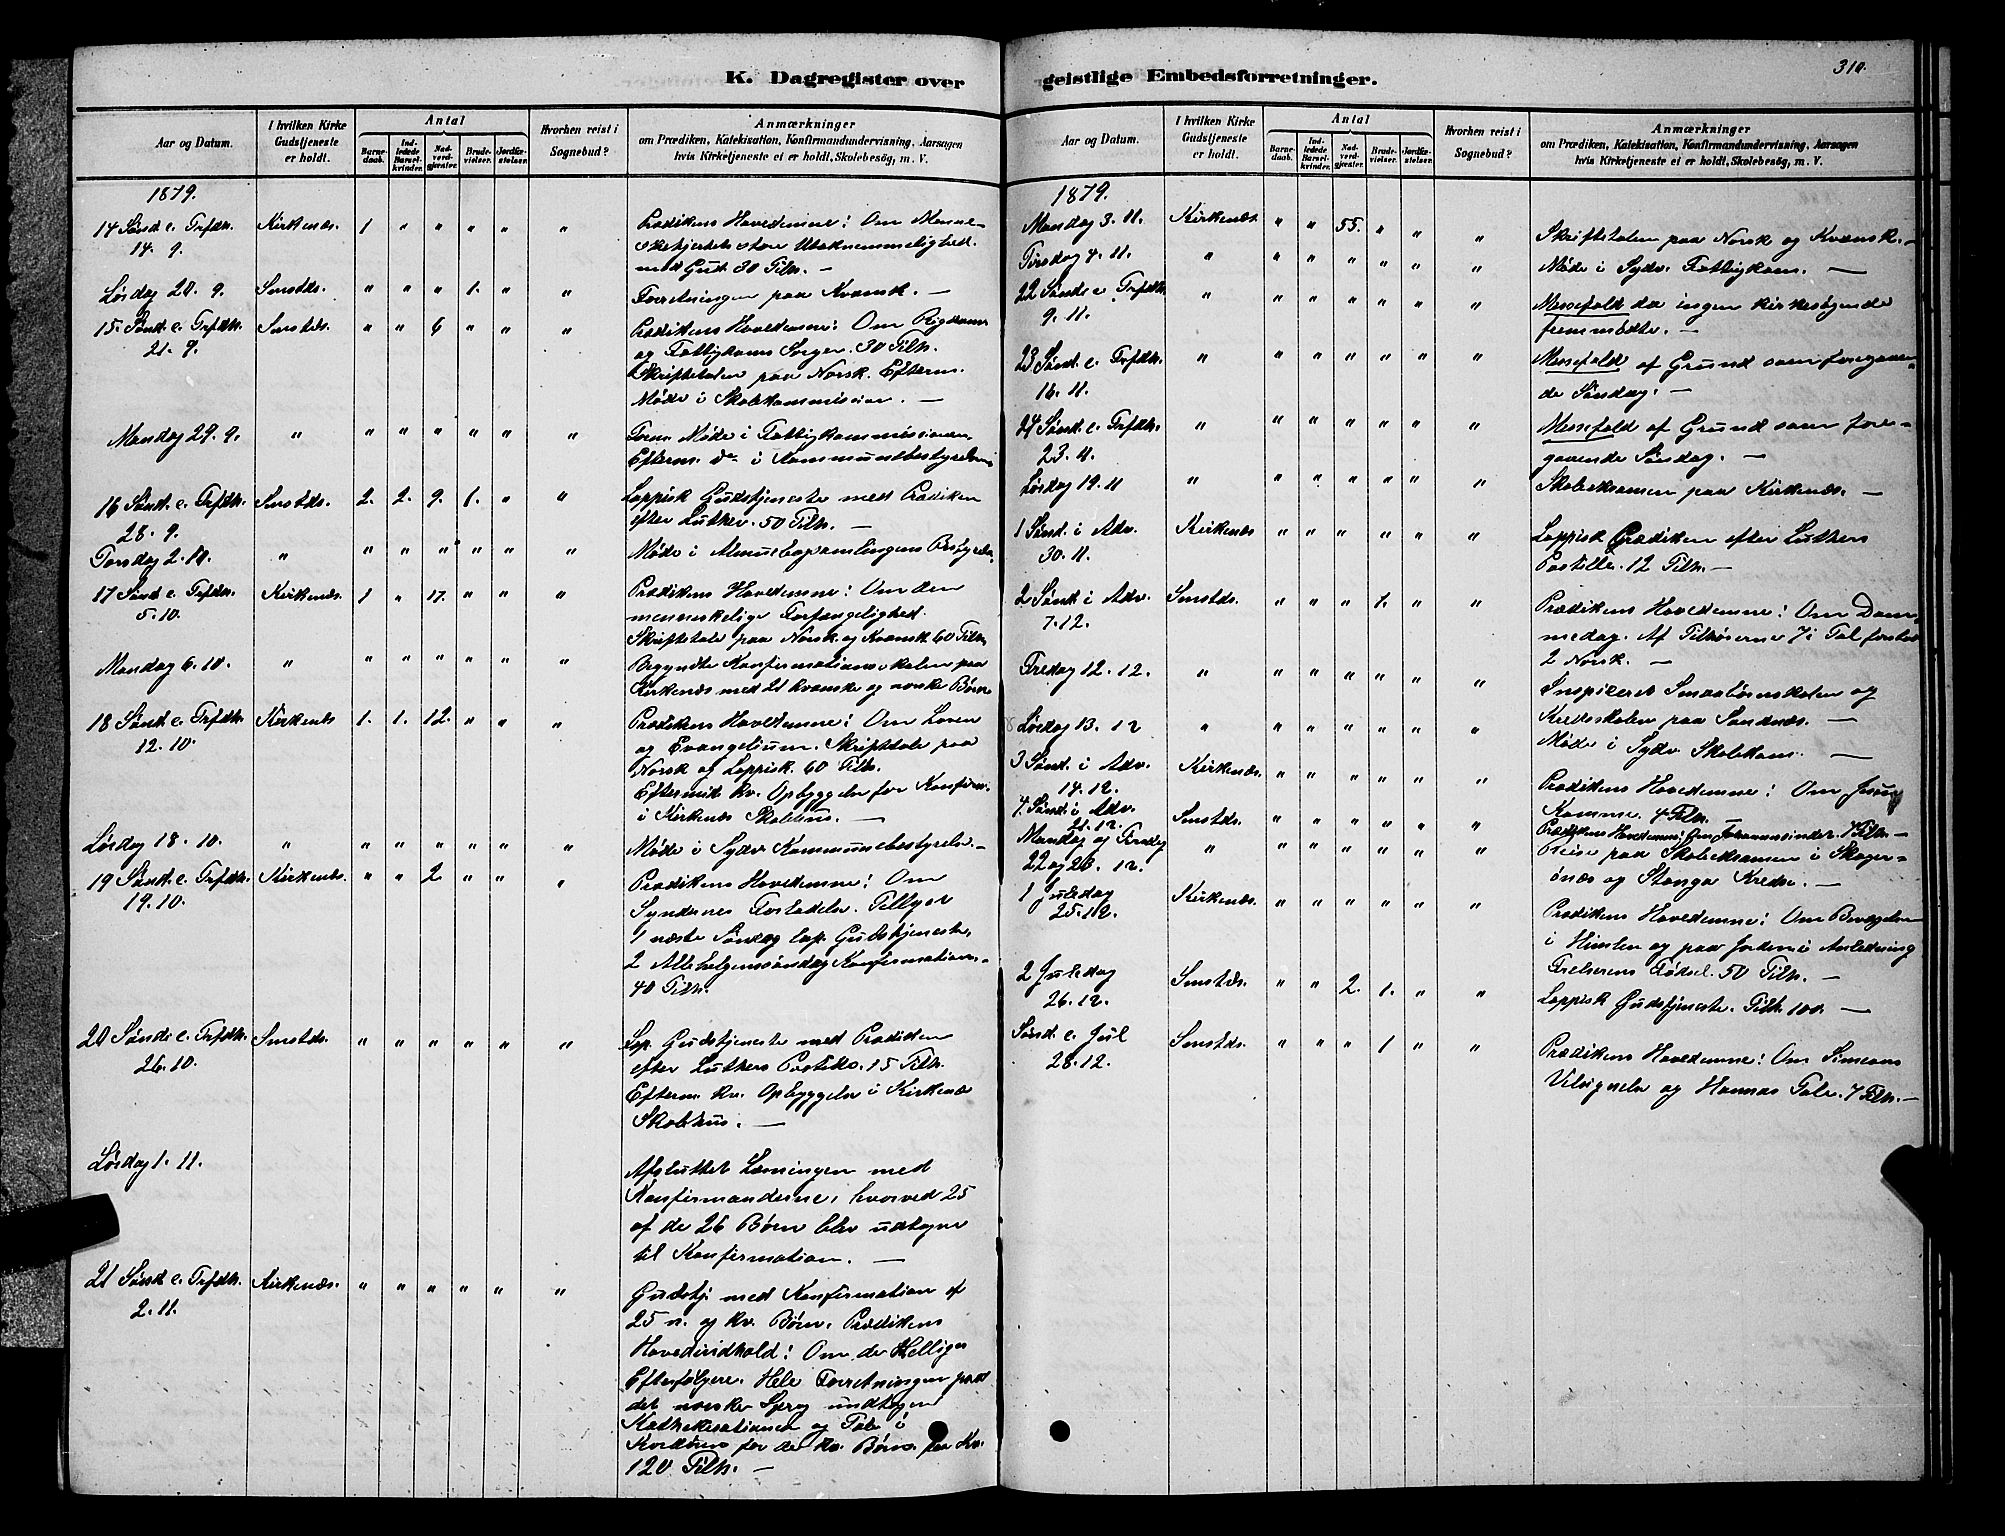 K. Dagregister over
Aar og Datum.
I hvilken Kirke Gudstjeneste er holdt.
Antal
Barnedaab.
Indledede Barselkvinder.
Nadverdgjester.
Brudevielser.
Jordfæstelser.
Hvorhen reist i Sognebud?
Anmærkninger
om Prædiken, Katekisation, Konfirmandundervisning, Aarsagen
hvis Kirketjeneste ei er holdt, Skolebesög, m. V.
1879.
14 Sønd. e. Trfdh. 14. 9. Kirkenæs. 1 " " " " " Prædikens Hovedemne: Om Menne-
skehjertets store Utaknemmelighed
mod Gud. 30 Tilh. —
Lørdag 20. 9. Smstds. " " " 1. " " Forretningen paa Kvænsk. —
15. Sønd. e. Trfdh. 21. 9. Smstds. " " 6 " " " Prædikens Hovedemne: Om Rigdoms
og Fattigdoms Sorger. 30 Tilh.
Skriftetalen paa Norsk. Efterm.
Møde i Skolekommission. —
Mandag 29. 9. " " " " " " " Form. Møde i Fattigkommissionen,
Efterm. do i Kommunebestyrelsen
16 Sønd. e. Trfdh. 28. 9. Smstds. 2. 2. 9. 1. " " Lappisk Gudstjeneste med Prædiken
efter Luther. 50 Tilh. —
Torsdag 2. 10. " " " " " " " Møde i Almueb
17 Sønd. e. Trfdh. 5. 10. Kirkenæs. 1 " 17. " " " Prædikens Hovedemne: Om den
menneskelige Forfængelighed.
Skriftetale paa Norsk og Kvænsk 60 Tilh.
Mandag 6. 10. " " " " " " " Begyndte Konfirmationsskolen paa
Kirkenæs med 21 kvænske og norske Børn
18 Sønd. e. Trfdh. 12. 10. Kirkenæs 1. 1. 12. " " " Prædikens Hovedemne: Om Loven
og Evangelium. Skriftetale paa
Norsk og Lappisk. 60 Tilh.
Eftermid. kv. Opbyggelse for Konfirm.
i Kirkenæs Skolehus. —
Lørdag 18. 10. " " " " " " " Møde i Sydv. Kommunebestyrelse. —
19 Sønd. e. Trfdh. 19. 10. Kirkenæs. " " 2. " " " Prædikens Hovedemne: Om
Syndernes Forladelse. Tillyst
1 næste Søndag lap. Gudstjeneste,
2 Allehelgenssøndag Konfirmation. —
40 Tilh.
20 Sønd. e. Trfdh. 26. 10. Smstds. " " " " " " Lap. Gudstjeneste med Prædiken
efter Luthers Postille. 15 Tilh.
Efterm. kv. Opbyggelse i Kirkenæs
Skolehus. —
Lørdag 1. 11. Afsluttet Læsningen med
Konfirmanderne, hvorved 25
af de 26 Børn blev udtagne
til Konfirmation. —
21 Sønd. e. Trfdh. 2. 11. Kirkenæs. " " " " " " Gudstj. med Konfirmation af
25 n. og kv. Børn. Prædikens
Hovedindhold: Om de Helliges
Efterfølgere. Hele Forretningen paa
det norske Sprog undtagen
Kathekisationen og Tale i
Kordøren for de kv. Børn paa Kv.
120 Tilh. —
geistlige Embedsforretninger.
310.
Aar og Datum.
I hvilken Kirke Gudstjeneste er holdt.
Antal
Barnedaab.
Indledede Barselkvinder.
Nadverdgjester.
Brudevielser.
Jordfæstelser.
Hvorhen reist i Sognebud?
Anmærkninger
om Prædiken, Katekisation, Konfirmandundervisning, Aarsagen
hvis Kirketjeneste ei er holdt, Skolebesög, m. V.
1879.
Mandag 3. 11. Kirkenæs. " " 55. " " " Skriftetalen paa Norsk og Kvænsk. —
Tirsdag 4. 11. " " " " " " " Møde i Sydv. Fattigkom. —
22 Sønd. e. Trfdh. 9. 11. " " " " " " " Messefald da ingen Kirkesøgende
fremmødte. —
23 Sønd. e. Trfdh. 16. 11. " " " " " " " Messefald af Grund som foregaaen-
de Søndag. —
24 Sønd. e. Trfdh. 23. 11. " " " " " " " Messefald af Grund som fore-
gaaende Søndag. —
Lørdag 19. 11 " " " " " " " Skoleeksamen paa Kirkenæs. —
1 Sønd. i Adv. 30. 11. Kirkenæs " " " " " " Lappisk Prædiken efter Luthers
Postille. 12 Tilh. —
2 Sønd. i Adv. 7. 12. Smstds. " " " 1. " " Prædikens Hovedemne: Om Dom-
medag. Af Tilhørerne 7 i Tal forstod
2 Norsk. —
Fredag 12. 12. " " " " " " " Inspiceret Smaabørnskolen og
Kredsskolen paa Sandnæs. —
Lørdag 13. 12 " " " " " " " Møde i Sydv. Skolekom. —
3 Sønd. i Adv. 14. 12. Kirkenæs. " " " " " " Prædikens Hovedemne: Om Jesu
Komme. 4 Tilh. —
4. Sønd. i Adv. 21. 12. Smstds. " " " " " " Prædikens Hovedemne: Om 1 Tilh. —
Mandag og Tirsdag 22 og 23. 12. " " " " " " " Reise paa Skoleeksamen i Skoger-
önæs og Stanga Kredse. —
1 Juledag 25. 12. Kirkenæs. " " " " " " Prædikens Hovedemne: Om Bevægelsen
i Himlen og paa Jorden i Anledning
Frelserens Fødsel. 50 Tilh. —
2 Juledag 26. 12. Smstds. " " 2. 1. " " Lappisk Gudstjeneste. Tilh. 100. —
Sønd. e. Jul 28. 12. Smstds. " " " 1 " " Prædikens Hovedemne: Om Simeons
Velsignelse og Hannas Tale. 7 Tilh. —